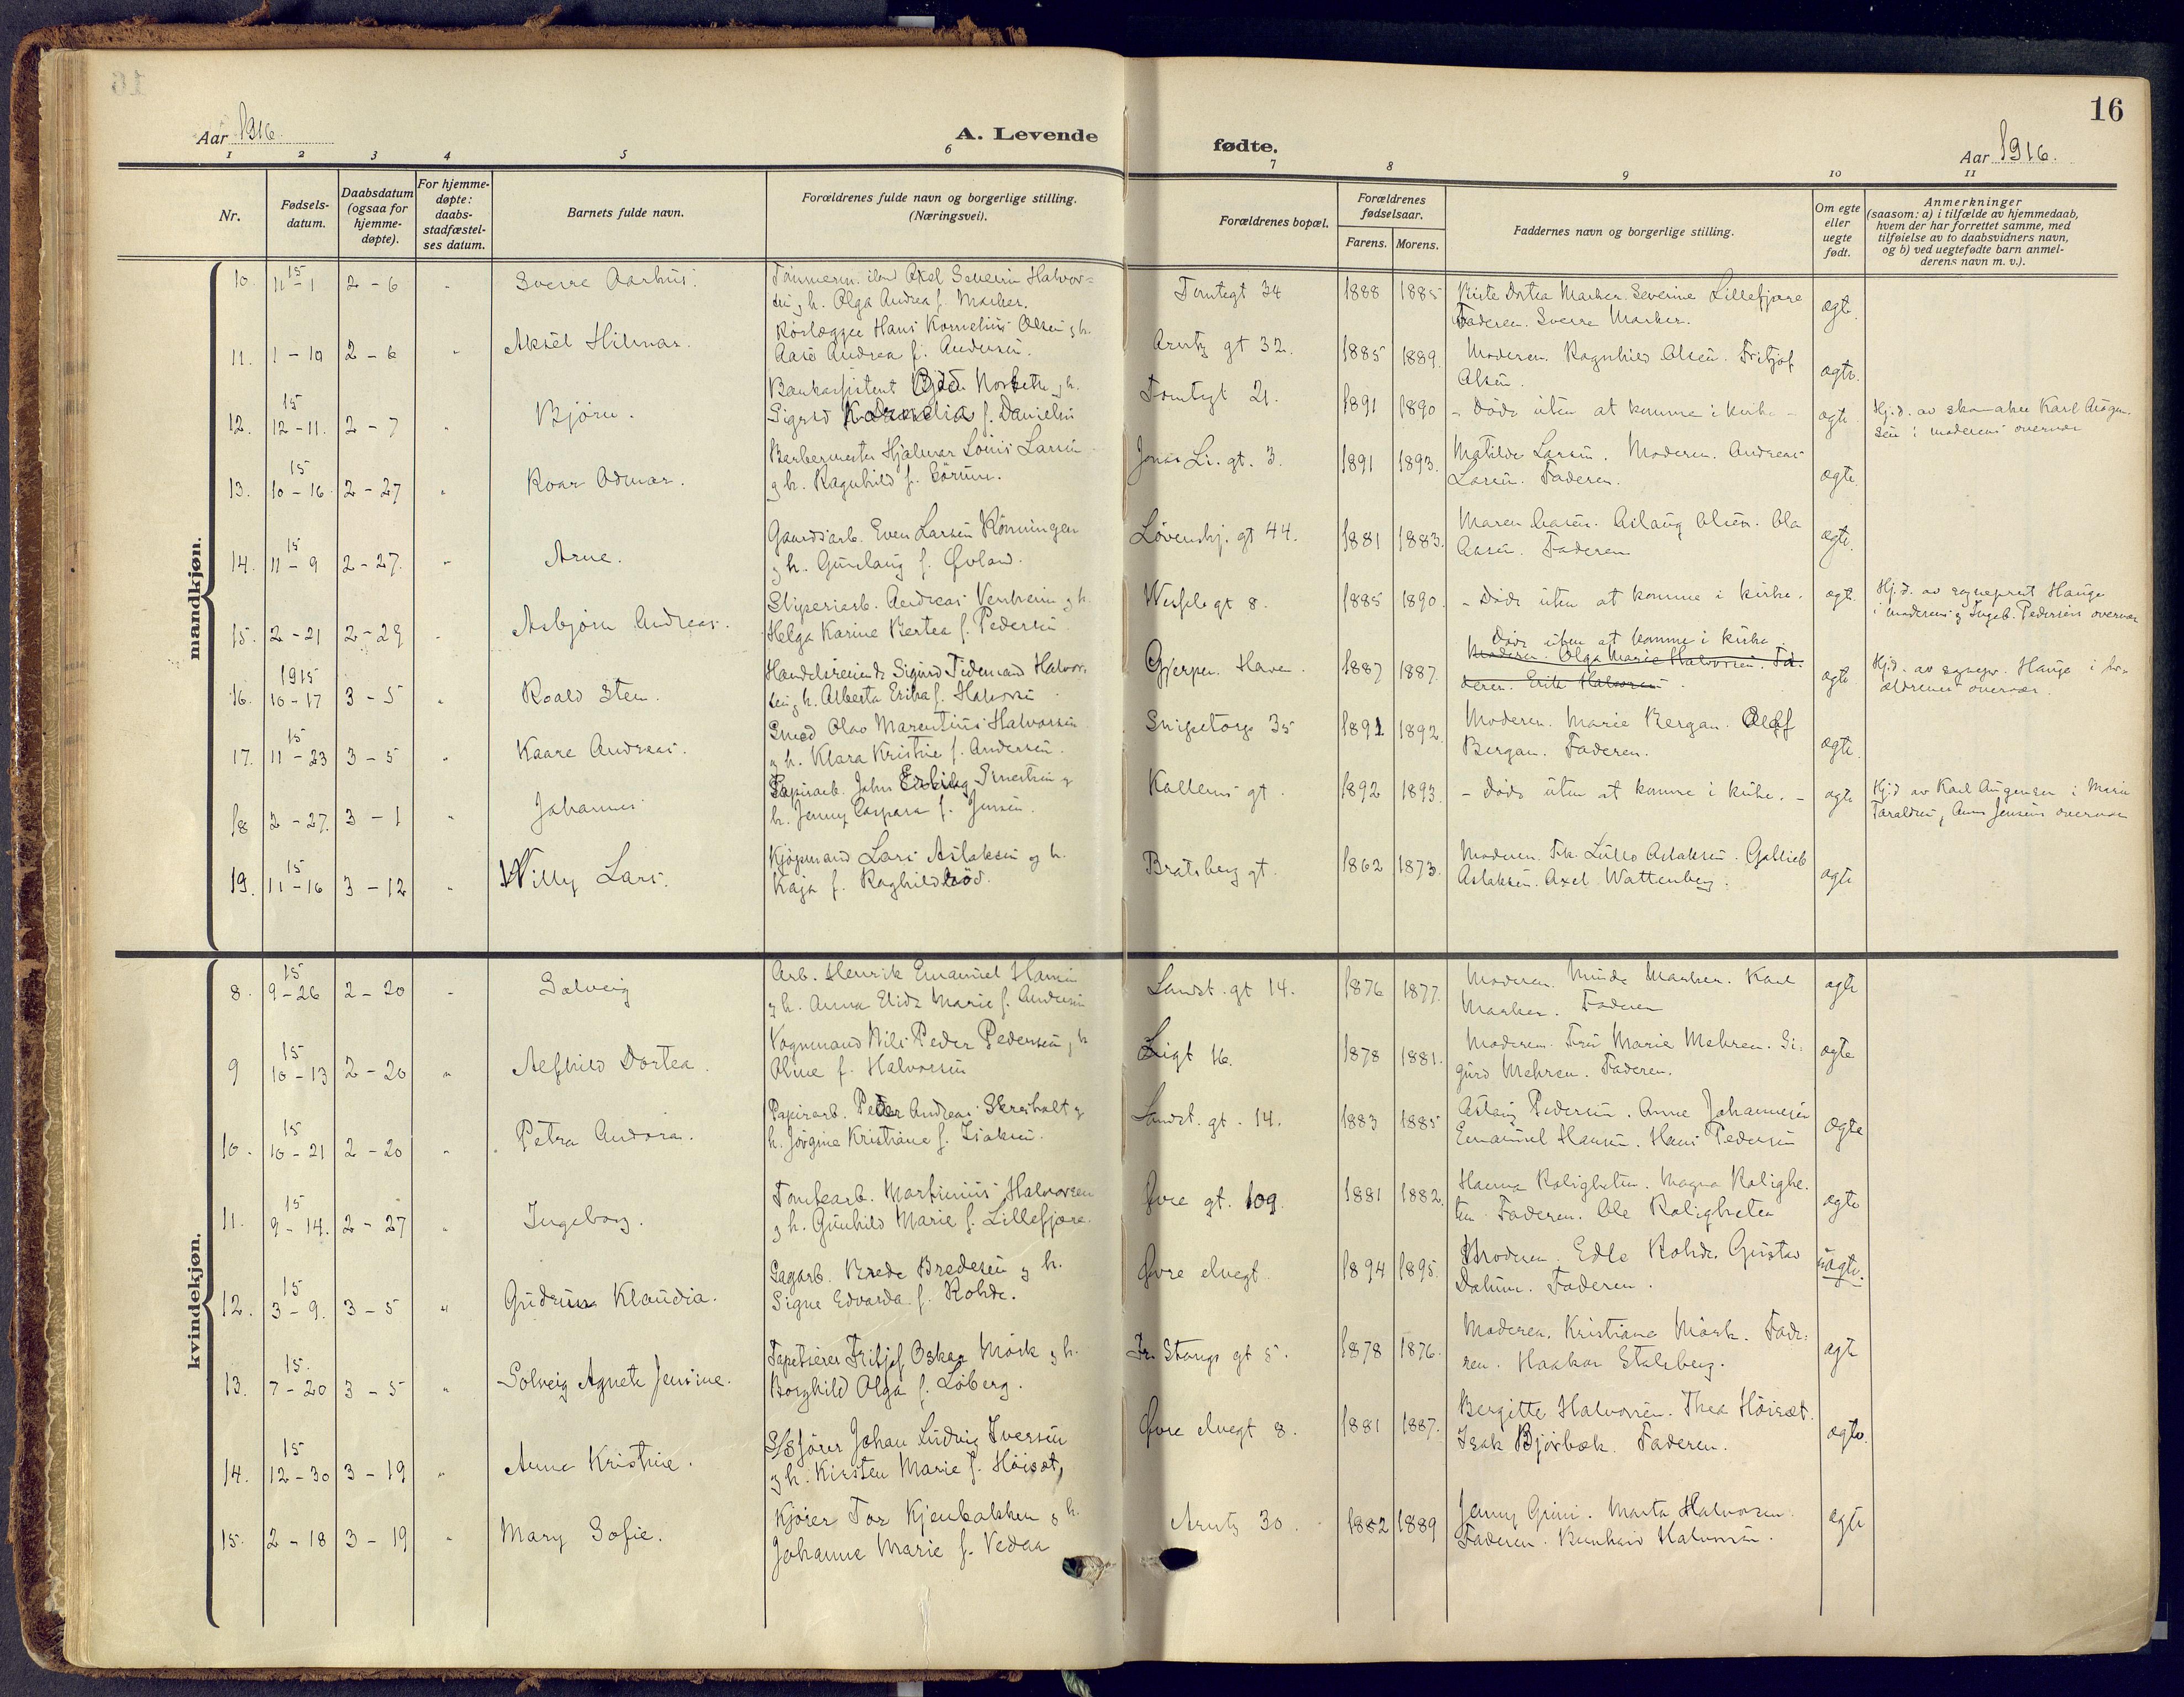 16
Aar 1916.
A. Levende
fødte.
Aar 1916.
1 2 3 4 5 6 7 8 9 10 11
Nr.
Fødsels-
datum.
Daabsdatum
(ogsaa for
hjemme-
døpte).
For hjemme-
døpte:
daabs-
stadfæstel-
ses datum.
Barnets fulde navn.
Forældrenes fulde navn og borgerlige stilling.
(Næringsvei).
Forældrenes bopæl.
Forældrenes
fødselsaar.
Farens. Morens.
Faddernes navn og borgerlige stilling.
Om egte
eller
uegte
født.
Anmerkninger
(saasom: a) i tilfælde av hjemmedaab,
hvem der har forrettet samme, med
tilføielse av to daabsvidners navn,
og b) ved uegtefødte barn anmel-
derens navn m. v.).
mandkjøn.
10. 15 11-1 2-6 " Sverre Aarhus.
Axel Severin Halvor-
sen g h. Olga Andrea f. Marker.
Tomtegt 34 1888 1885
Dortea Marker. Severine Lillefjære
Faderen. Sverre Marker.
ægte.
11. 1-10 2-6 " Aksel Hilmar.
Rørlægger Hans Kornelius Olsen g h.
Aase Andrea f. Andersen.
Arntz gt 32. 1885 1889.
Moderen. Ragnhild Olsen. Fritjof
Olsen.
ægte.
12. 15 12-11. 2-7 " Bjørn.
Bankassistent
Sigrid Kornelia f. Danielsen
Tomtegt 21. 1891 1890
- Døde uten at komme i kirke -
ægte
Hj. d. av skomaker Karl Aasgen-
sen i moderens overvær
13. 15 10-16. 2-27 " Roar Odmar.
Barbermester Hjalmar Louis Larsen
g h. Ragnhild f. Sörum.
Jonas Li. gt. 3. 1891 1893.
Matilde Larsen. Moderen. Andreas
Larsen. Faderen.
ægte.
14. 15 11-9 2-27. " Arne.
Gaardsarb. Even Larsen Rönningen
g h. Gunlaug f. Øvland.
Løvenskj. gt 44. 1881 1883.
Maren Aasen. Aslaug Olsen. Ola
Aasen. Faderen
ægte.
15. 2-21 2-29 " Asbjørn Andreas.
Sliperiarb. Andreas Venheim g h.
Helga Karine Bertea f. Pedersen
gt 8. 1885 1890.
- Døde uten at komme i kirke.
ægte.
Hj. d. av sogneprest Hauge
i moderens g Ingeb. Pedersens overvær
16. 1915 10-17 3-5 " Roald Sten.
Handelsreisende Sigurd Tidemand Halvor-
sen g h. Alberta Erika f. Halvorsen
Gjerpen. Haven. 1887 1887.
Døde uten at komme i kirke
Moderen. Olga Marie Halvorsen. Fa-
deren. Erik Halvorsen.
ægte
Hj. d. av sognepr. Hauge i for-
ældrenes overvær.
17. 15 11-23 3-5 " Kaare Andreas.
Smed Olav Marentius Halvorsen
g h. Klara Kristine f. Andersen.
Snipetorp 35 1891 1892.
Moderen. Marie Bergan. Oluf
Bergan. Faderen.
ægte.
18 2-27. 3-1 " Johannes
Papirarb. John Erling g
h. Jenny Caspara f. Jensen.
Kallems gt. 1892 1893.
- Døde uten at komme i kirke. -
ægte
Hj. d av Karl Aasgensen i Marie
Taraldsen, Anna Jensens overvær
19. 15 11-16 3-12 " Willy Lars.
Kjøpmand Lars Aslaksen og h.
Kaja f. Ragnhildsrød.
Bratsberg gt. 1862 1873.
Moderen. Frk. Lulla Aslaksen. Gotlieb
Aslaksen. Axel Wattenberg.
ægte
kvindekjøn.
8. 15 9-26 2-20 " Solveig
Arb. Henrik Emanuel Hansen
g h. Anna Elida Marie f. Andersen
Landst. gt 14. 1876 1877.
Moderen. Minda Marker. Karl
Marker. Faderen
ægte
9 15 10-13 2-20 " Alfhild Dortea.
Vognmand Nils Peder Pedersen g h
Oline f. Halvorsen
Ligt 16. 1878 1881.
Moderen. Fru Marie Mehren. Si-
gurd Mehren. Faderen.
ægte
10. 15 10-21 2-20 " Petra Andora.
Papirarb. Peder Andreas Skreholt g
h. Jørgine Kristiane f. Isaksen.
Landst. gt. 14. 1883 1885
Aslaug Pedersen. Anne Johannesen
Emanuel Hansen. Hans Pedersen
ægte
11. 15 9-14. 2-27 " Ingeborg.
Tomtearb. Martinius Halvorsen
g h. Gunhild Marie f. Lillefjære.
Øvre gt. 109. 1881 1882.
Hanna Roligheten. Magna Rolighe-
ten. Faderen. Ole Roligheten
ægte
12. 15 3-9. 3-5 " Gudrun Klaudia.
Sagarb. Brede Bredesen g h.
Signe Edvarda f. Rohde.
Øvre elvegt. 1894 1895.
Moderen. Edle Rohde. Gustav
Dalum. Faderen.
uægte.
13. 15. 7-20 3-5 " Solveig Agnete Jensine.
Tapetserer Fritjof Oskar Mörk g h.
Borghild Olga f. Löberg.
Fr. Stangs gt 5. 1878 1876.
Moderen. Kristiane Mörk. Fade-
ren. Haakon Stalsberg.
ægte
14. 15 12-30 3-19 " Anna Kristine.
S/sförer Johan Ludvig Iversen
g h. Kirsten Marie f. Höisæt,
Øvre elvegt 8. 1881 1887.
Bergitte Halvorsen. Thea Höisæt.
Isak Bjørbæk. Faderen.
ægte.
15. 2-18 3-19 " Mary Sofie.
Kjører Tor Kjenbakken g h.
Johanne Marie f. Vedaa
Arntz 30. 1882 1889
Jenny Grini. Marta Halvorsen.
Faderen. Bernhard Halvorsen.
ægte